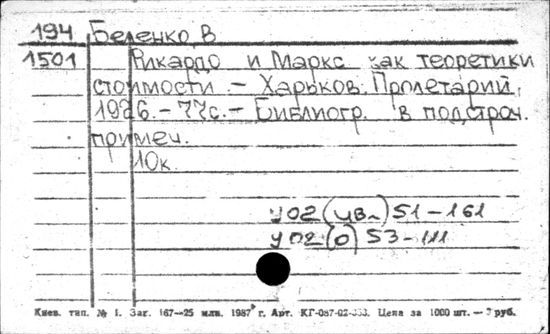 194 Беленко, В
1501 Рикардо и Маркс как теоретики
стоимости. – Харьков: Пролетарий,
1926. – 77с. – Библиогр. в подстроч.
примеч.
10к.
у02(цвл) 51-161
у02(о) 53-111
Киев. тип. № 1. Заг. 167—25 млн. 1987 г. Арт. КГ-087-02- Цена за 1000 шт. — 3 руб.